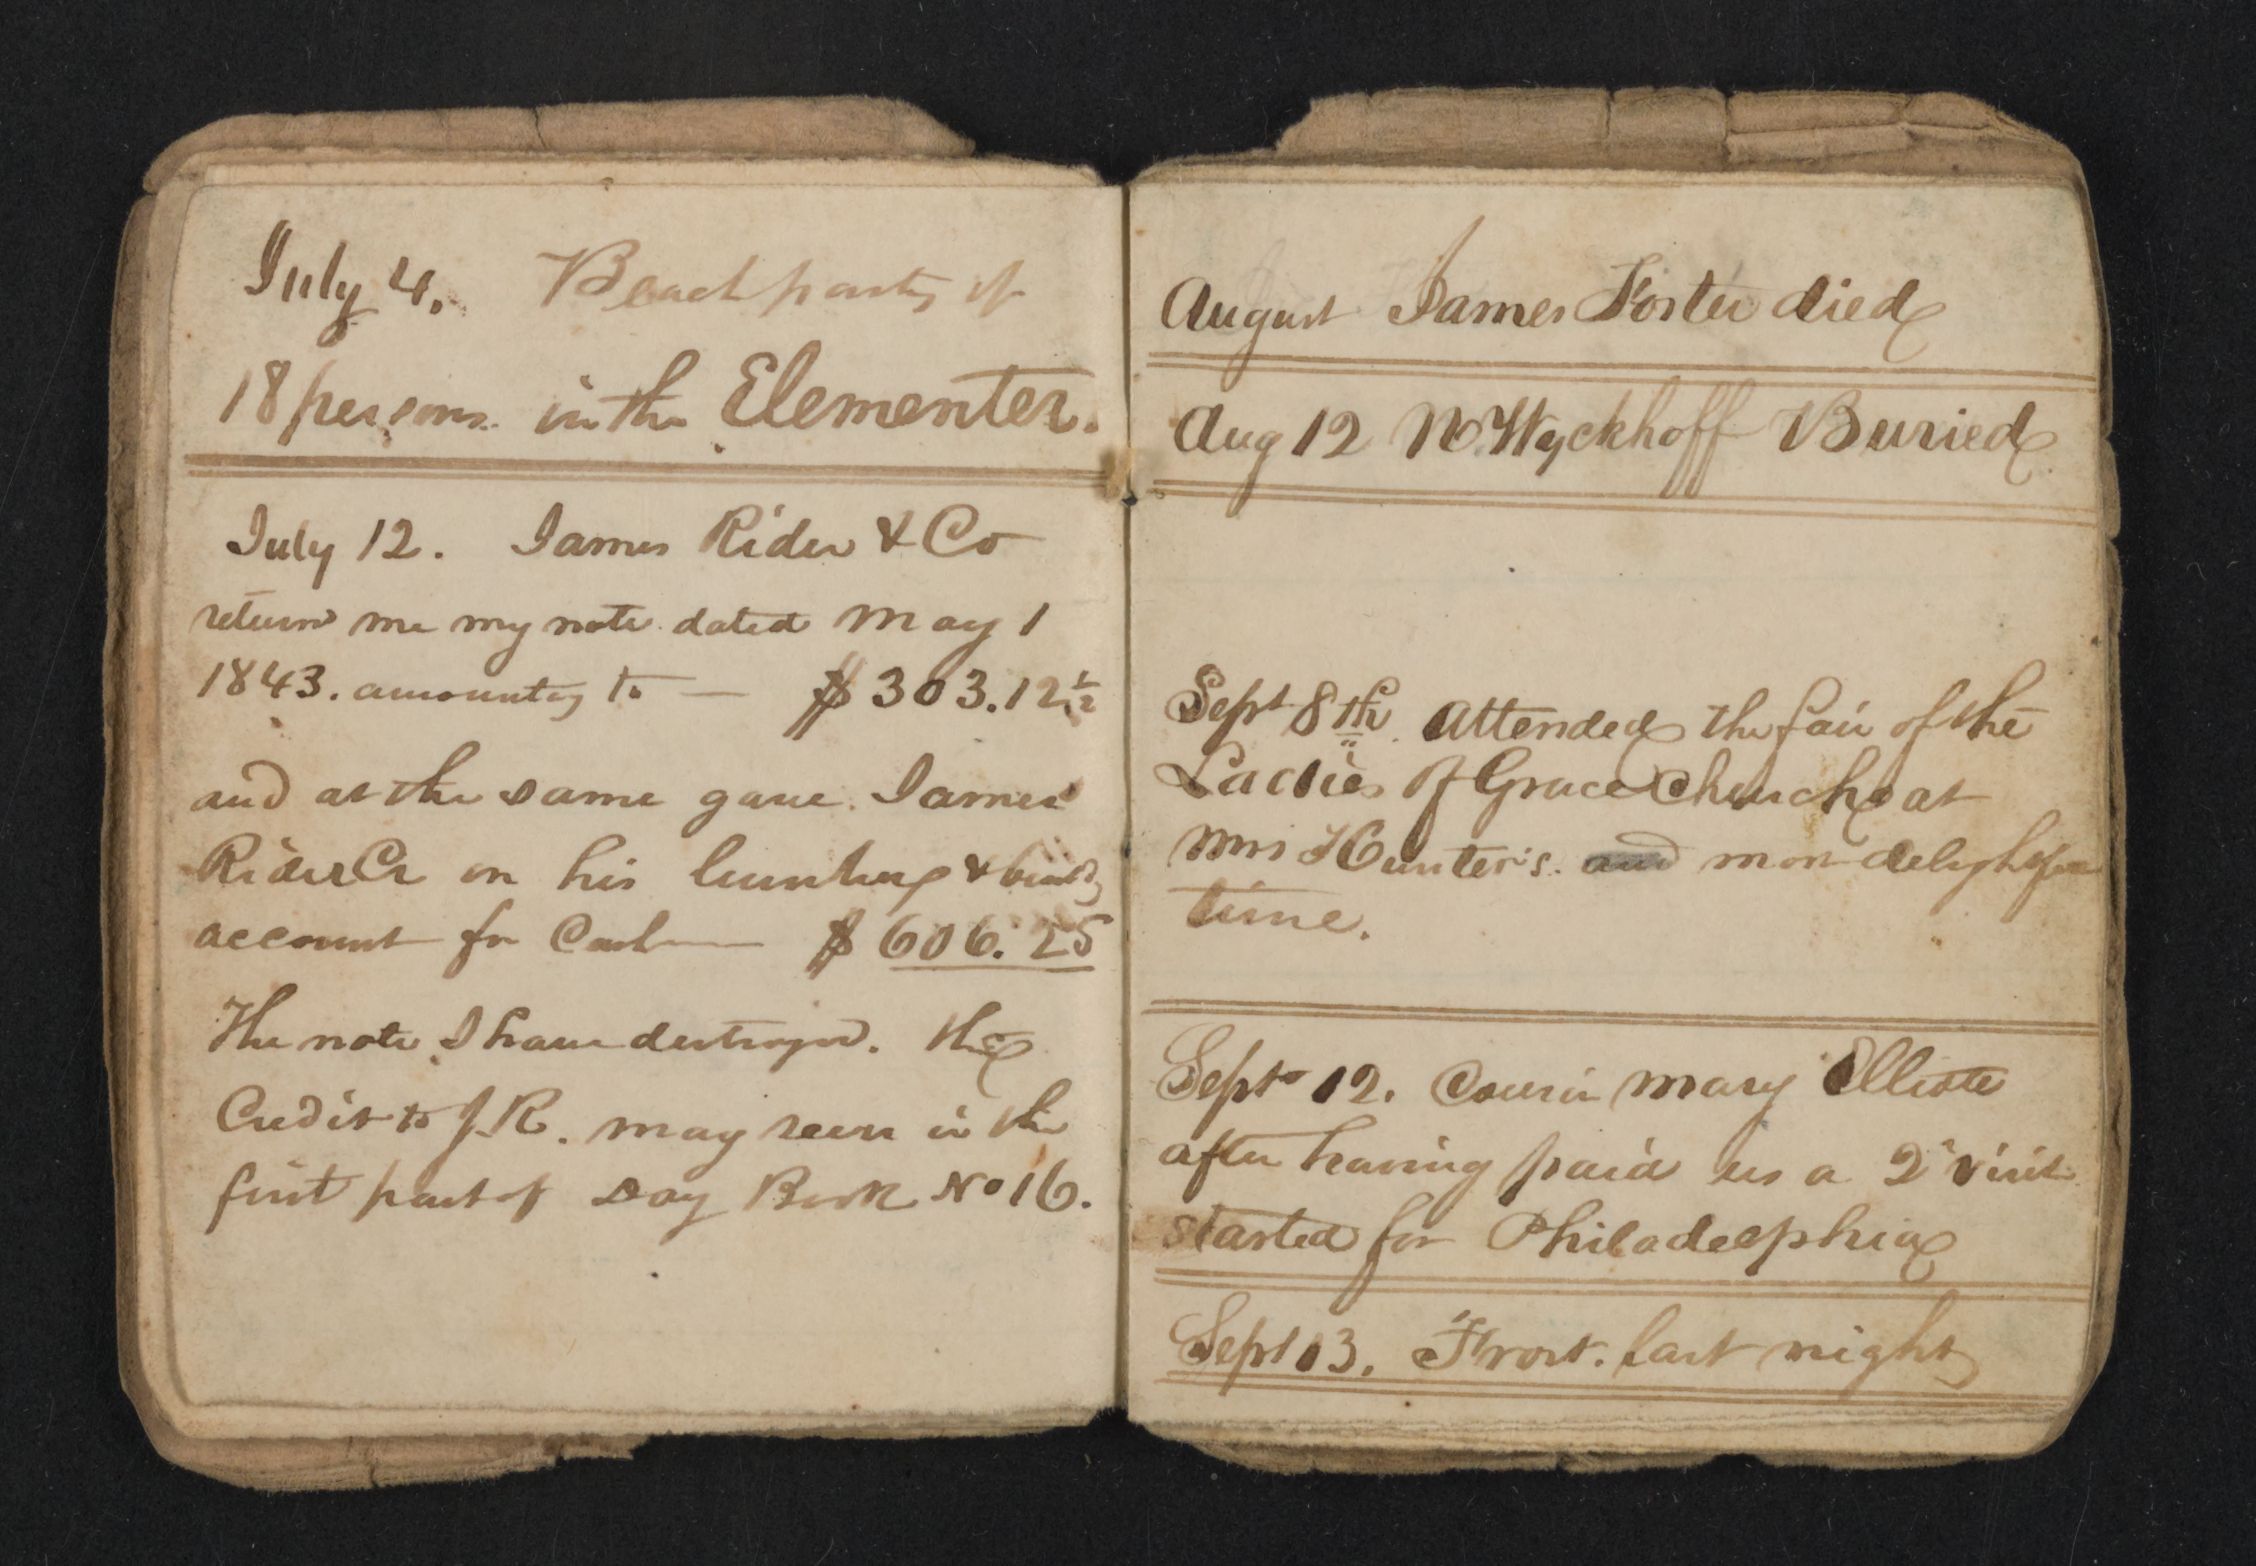 July 4. Beach party of
18 persons in the Elementer.
July 12. James Rider & Co
return me my note dated May 1
1843. amounting to — $303.12½
and at the same gave James
Rider Cr on his lumber &
account for Cash — $606.25
The note I have destroyed. The
Credit to J.R. may seen in the
first part of Day Book No 16.
August James Foster died
Aug 12 N. Wyckhoff Buried
Sept 8th. Attended the fair of the
Ladies of Grace Church at
Mrs Hunter's. and most delightful
time.
Sept 12. Cousin Mary Elliote
after having paid us a 2d visit
started for Philadelphia
Sept 13. Frost. last night